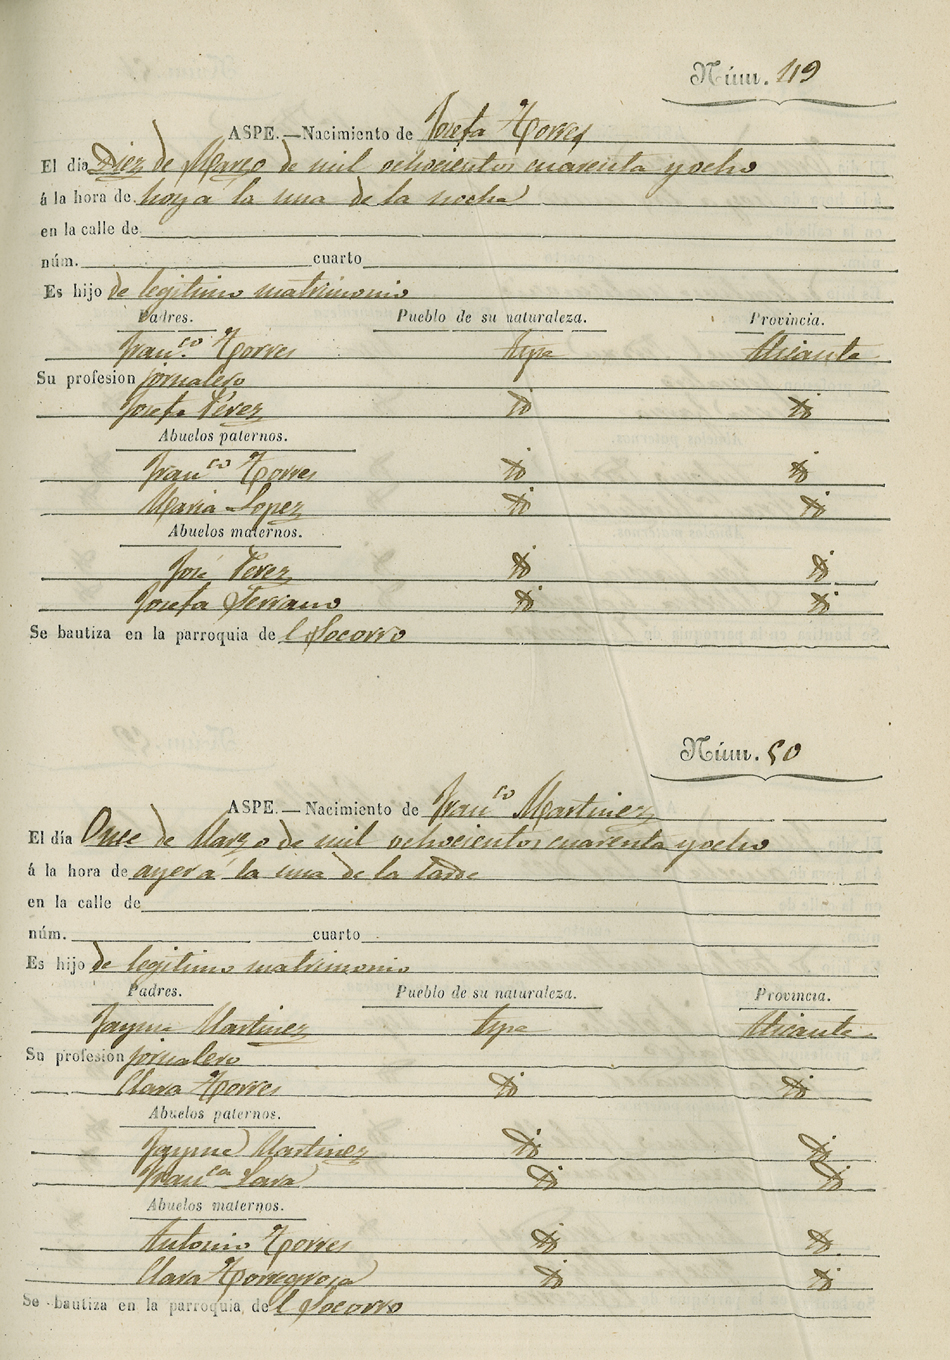 Núm. 119
ASPE.—Nacimiento de Josefa Torres
El día Diez de Marzo de mil ochocientos cuarenta y ocho
á la hora de hoy á la una de la noche
en la calle de
núm. cuarto
Es hijo de legitimo matrimonio
Padres. Pueblo de su naturaleza. Provincia.
Fran.co Torres Aspe Alicante
Su profesion jornalero
Josefa Perez
Abuelos paternos.
Franco Torres
Maria Lopez
Abuelos maternos.
José Perez
Josefa Serrano
Se bautiza en la parroquia de l Socorro
Núm. 50
ASPE.—Nacimiento de Franco Martinez
El día Once de Marzo de mil ochocientos cuarenta y ocho
á la hora de ayer á la una de la tarde
en la calle de
núm. cuarto
Es hijo de legitimo matrimonio
Padres. Pueblo de su naturaleza. Provincia.
Jayme Martinez Aspe Alicante
Su profesion jornalero
Clara Torres
Abuelos paternos.
Jayme Martinez
Franca
Abuelos maternos.
Antonio Torres
Clara Torregrosa
Se bautiza en la parroquia de l Socorro